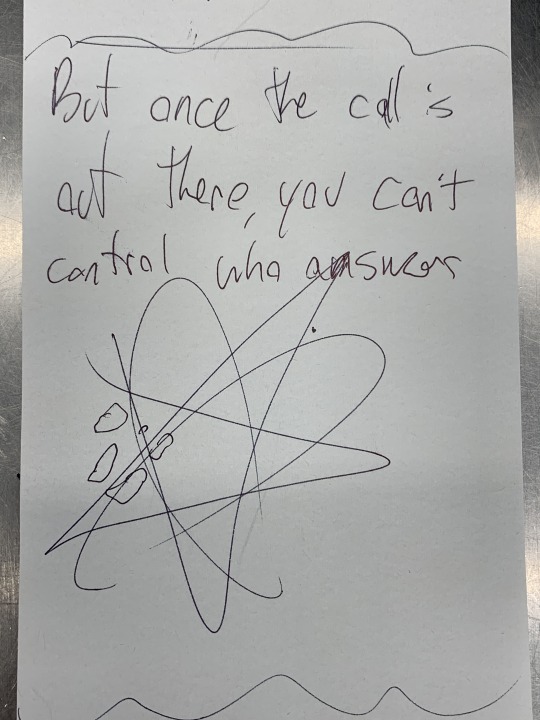 But once the call is
out there, you can't
control who answers